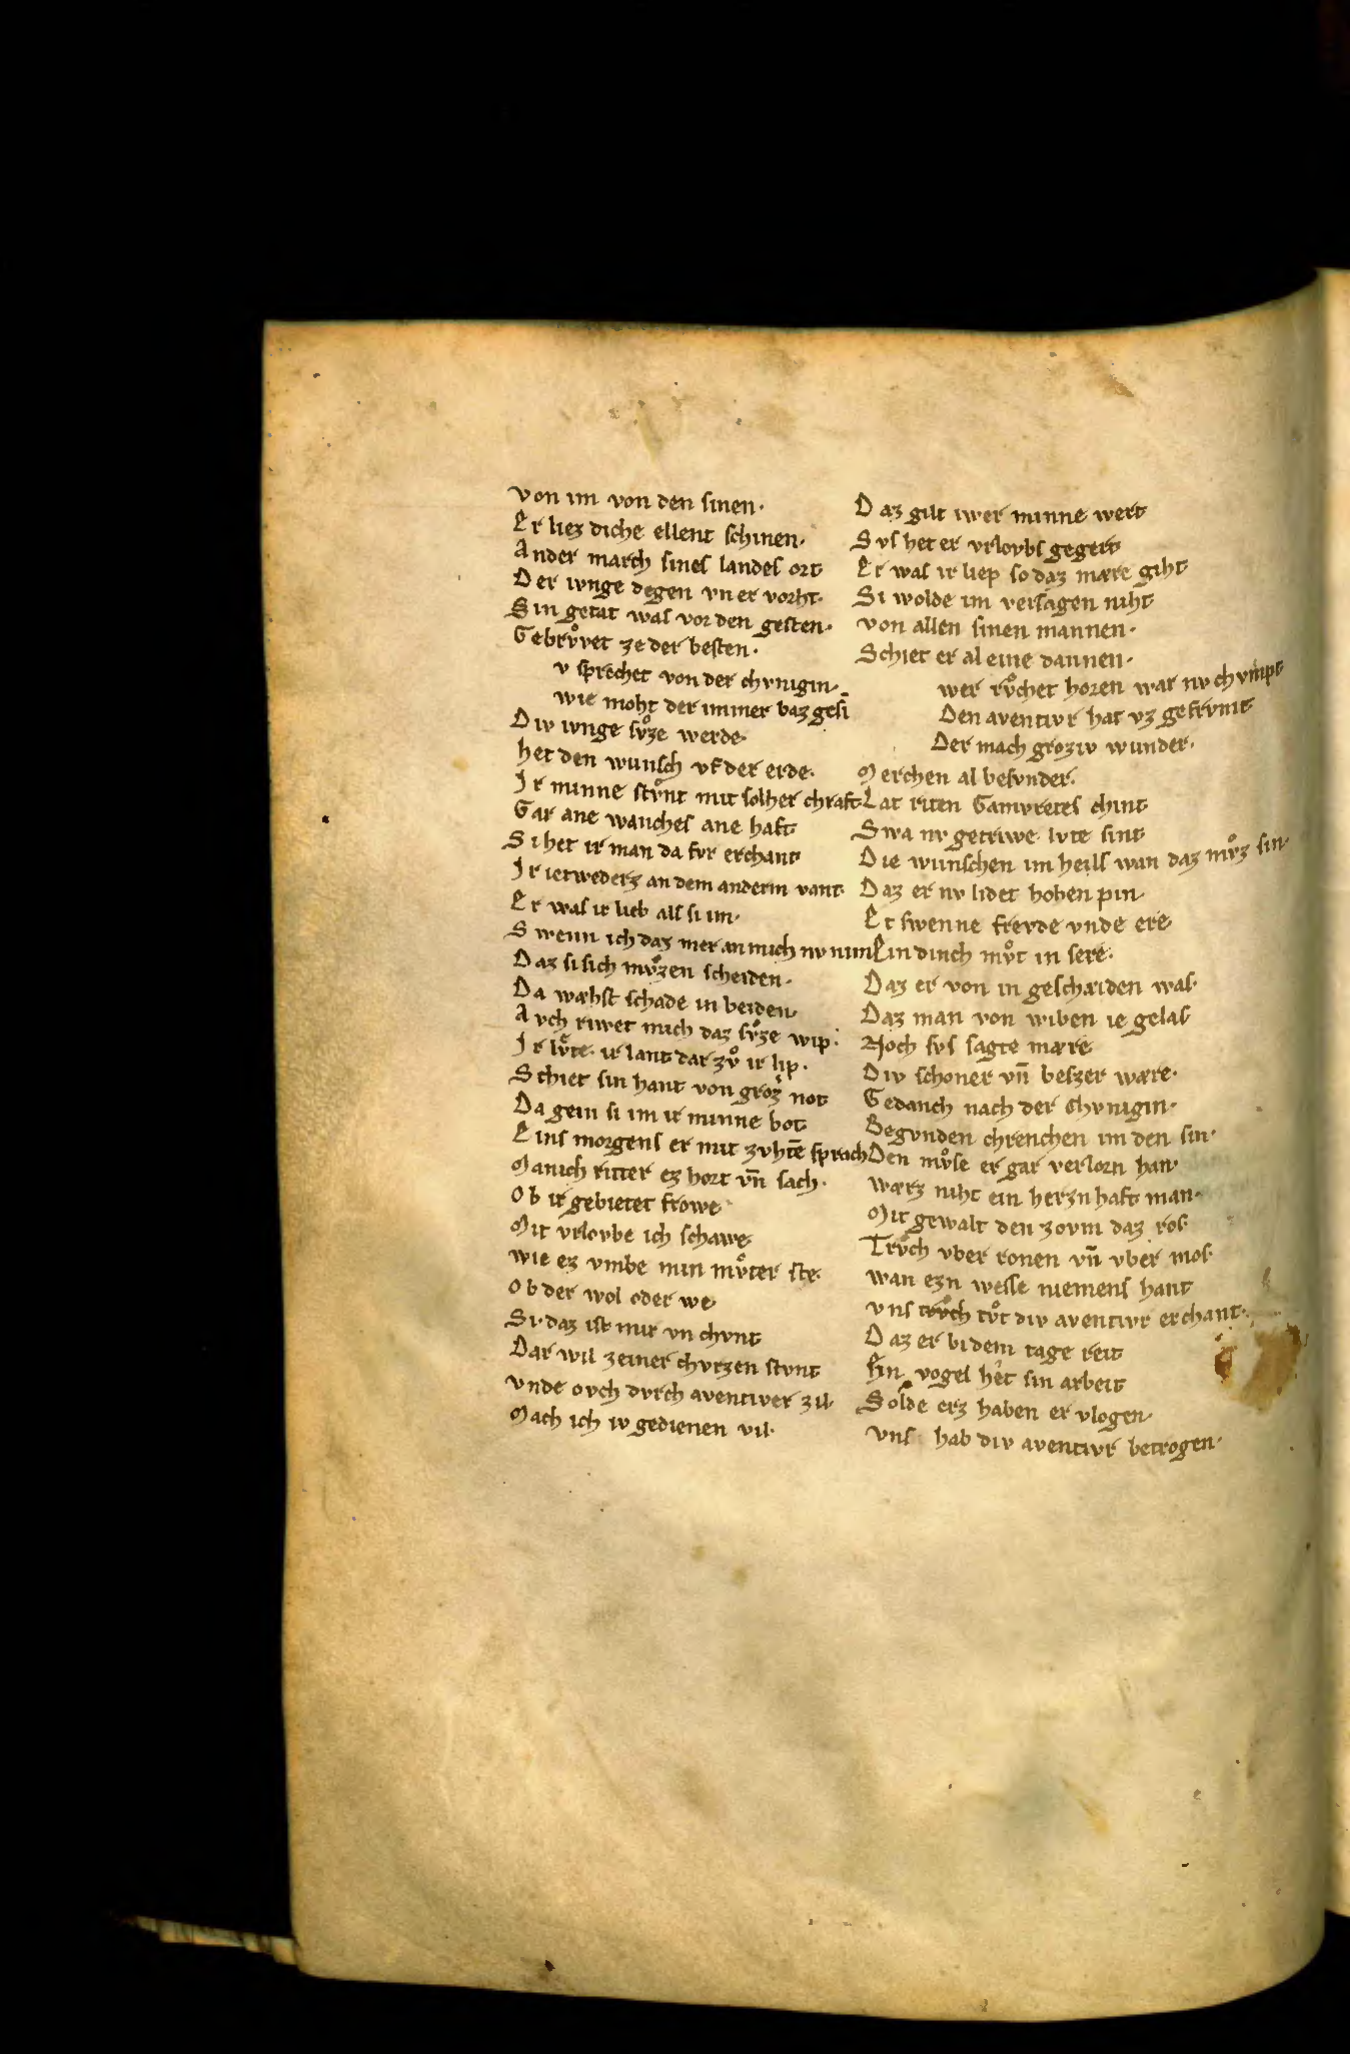 von im von den sinen·
Er liez diche ellent schinen·
Ander march sines landes ort
Der ivnge degen vn er vorht·
Sin getat was vor den gesten·
Gebrvͦvet ze der besten·
v sprechet von der chvnigin·
wie moht der immer baz gesī
Div ivnge svͦze werde·
het den wunsch vf der erde·
Ir minne stvͦnt mit solher chraft
Gar ane wanches ane haft
Si het ir man da fvr erchant
Ir ietweders an dem anderm vant·
Er was ir lieb als si im·
Swenn ich daz mer an mich nv nim
Daz si sich mvͦzen scheiden·
Da wæhst schade in beiden·
Avch rivwet mich daz svͦze wip·
Ir lvͦte· ir lant dar zvͦ ir lip·
Schiet sin hant von groz̉ not
Da gein si im ir minne bot
Eins morgens er mit zvhtē sprach
Manich ritter ez hort vn̄ sach·
Ob ir gebietet frowe
Mit vrlovbe ich schawe
wie ez vmbe min mvͦter ste·
Ob der wol oder we
Si·daz ist mir vn chvnt
Dar wil zeiner chvrzen stvnt
vnde ovch dvrch aventiver zil·
Mach ich iv gedienen vil·
Daz gilt iwer minne wert
Svs het er vrlovbs gegert
Er was ir liep so daz mære giht
Si wolde im versagen niht
von allen sinen mannen·
Schiet er al eine dannen·
wer rvͦchet horen war nv chvmpt
Den aventivr hat vz gefrvmt
Der mach groziv wunder·
Merchen al besvnder·
Lat riten Gamvretes chint
Swa nv getriwe· lvte sint
Die wunschen im heils wan daz mvͦz sin·
Daz er nv lidet hohen pin·
Et swenne frevde vnde ere
Ein dinch mvͦt in sere·
Daz er von in geschæiden was·
Daz man von wiben ie gelas
Noch svs sagte mære
Div schoner vn̄ beszer wære·
Gedanch nach der chvnigin·
Begvnden chrenchen im den sin·
Den mvͦse er gar verlorn han·
wærz niht ein herzn haft man·
Mit gewalt den zovm daz ros·
Trvͦch vber ronen vn̄ vber mos·
wan ezn wesse niemens hant
vns trvͦch tvͦt div aventivr erchant·
Daz er bi dem tage reit
Ein vogel het sin arbeit
Solde erz haben er vlogen·
vns hab div aventivr betrogen·